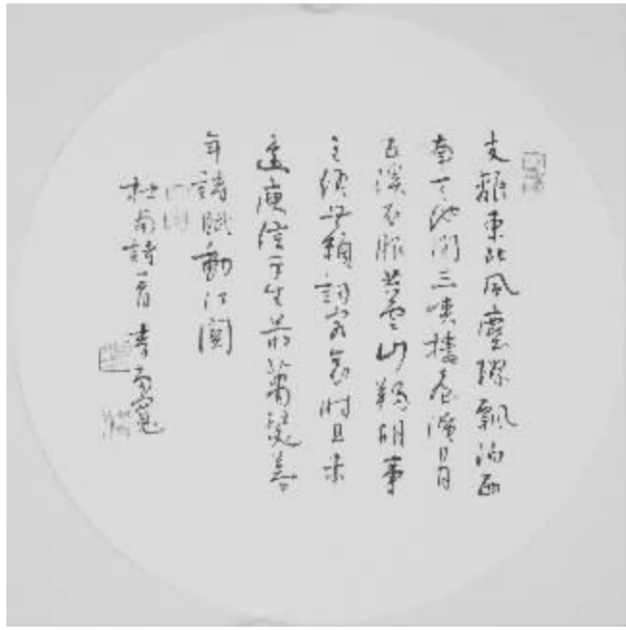 支離東北風塵際飄泊西
南天地间三峡樓臺淹日月
五溪衣服共雲山羯胡事
主終無賴詞客哀时且未
還庾信平生最蕭瑟暮
年詩賦動江関
杜甫詩一首